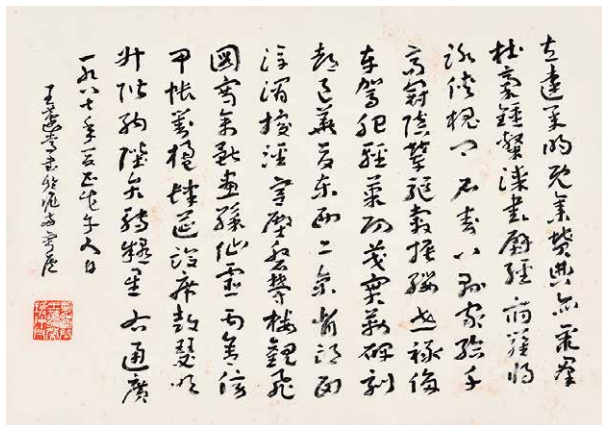 左達承明既集墳典亦聚群
杜稾鍾隸漆書壁經府羅將
俠槐戶封八縣家給千
高冠陪輦驅轂振纓世祿侈
車駕肥輕策功茂實勒碑刻
都邑華夏東西二京背邙面
浮渭據涇宮殿盤鬱樓觀飛
圖寫禽獸畫彩仙靈丙舍傍
甲帳對楹肆筵設席鼓瑟吹
升階納陛弁轉疑星右通廣
一九八七年
王蘧常書於滬